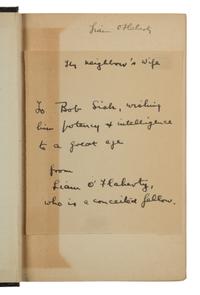 Liam O'Flaherty
Thy Neighbour's Wife
To Bob Sisk, wishing
him potency & intelligence
to a great age
from
Liam O'Flaherty,
who is a conceited fellow.